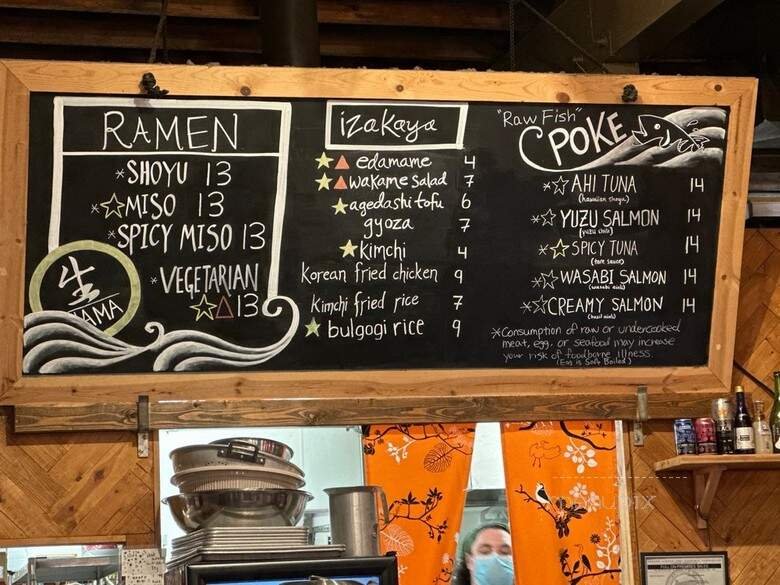 RAMEN
*SHOYU 13
*☆MISO 13
*SPICY MISO 13
*VEGETARIAN
☆△13
生
izakaya
★▲edamame 4
★▲wakame salad 7
★agedashi tofu 6
gyoza 7
★kimchi 4
Korean fried chicken 9
Kimchi fried rice 7
★bulgogi rice 9
"Raw Fish"
POKE
*☆AHI TUNA 14
(hawaiian shoyu)
*☆YUZU SALMON 14
(yuzu chili)
*☆SPICY TUNA 14
(tare sauce)
*☆WASABI SALMON 14
(wasabi aioli)
*☆CREAMY SALMON 14
(basil aioli)
*Consumption of raw or undercooked
meat, egg, or seafood may increase
your risk of foodborne illness.
(Egg is Soft Boiled)